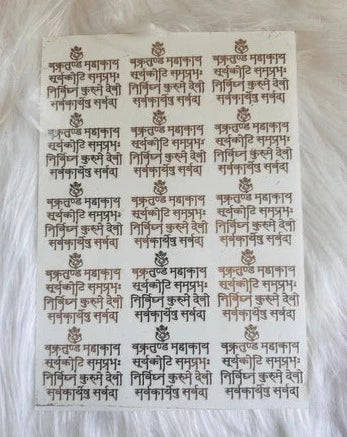 वक्रतुण्ड महाकाय
सूर्यकोटि समप्रभः
निर्विघ्न कुरुमे देवो
सर्वकार्येषु सर्वदा
वक्रतुण्ड महाकाय
सूर्यकोटि समप्रभः
निर्विघ्न कुरुमे देवो
सर्वकार्येषु सर्वदा
वक्रतुण्ड महाकाय
सूर्यकोटि समप्रभः
निर्विघ्न कुरुमे देवो
सर्वकार्येषु सर्वदा
वक्रतुण्ड महाकाय
सूर्यकोटि समप्रभः
निर्विघ्न कुरुमे देवो
सर्वकार्येषु सर्वदा
वक्रतुण्ड महाकाय
सूर्यकोटि समप्रभः
निर्विघ्न कुरुमे देवो
सर्वकार्येषु सर्वदा
वक्रतुण्ड महाकाय
सूर्यकोटि समप्रभः
निर्विघ्न कुरुमे देवो
सर्वकार्येषु सर्वदा
वक्रतुण्ड महाकाय
सूर्यकोटि समप्रभः
निर्विघ्न कुरुमे देवो
सर्वकार्येषु सर्वदा
वक्रतुण्ड महाकाय
सूर्यकोटि समप्रभः
निर्विघ्न कुरुमे देवो
सर्वकार्येषु सर्वदा
वक्रतुण्ड महाकाय
सूर्यकोटि समप्रभः
निर्विघ्न कुरुमे देवो
सर्वकार्येषु सर्वदा
वक्रतुण्ड महाकाय
सूर्यकोटि समप्रभः
निर्विघ्न कुरुमे देवो
सर्वकार्येषु सर्वदा
वक्रतुण्ड महाकाय
सूर्यकोटि समप्रभः
निर्विघ्न कुरुमे देवो
सर्वकार्येषु सर्वदा
वक्रतुण्ड महाकाय
सूर्यकोटि समप्रभः
निर्विघ्न कुरुमे देवो
सर्वकार्येषु सर्वदा
वक्रतुण्ड महाकाय
सूर्यकोटि समप्रभः
निर्विघ्न कुरुमे देवो
सर्वकार्येषु सर्वदा
वक्रतुण्ड महाकाय
सूर्यकोटि समप्रभः
निर्विघ्न कुरुमे देवो
सर्वकार्येषु सर्वदा
वक्रतुण्ड महाकाय
सूर्यकोटि समप्रभः
निर्विघ्न कुरुमे देवो
सर्वकार्येषु सर्वदा